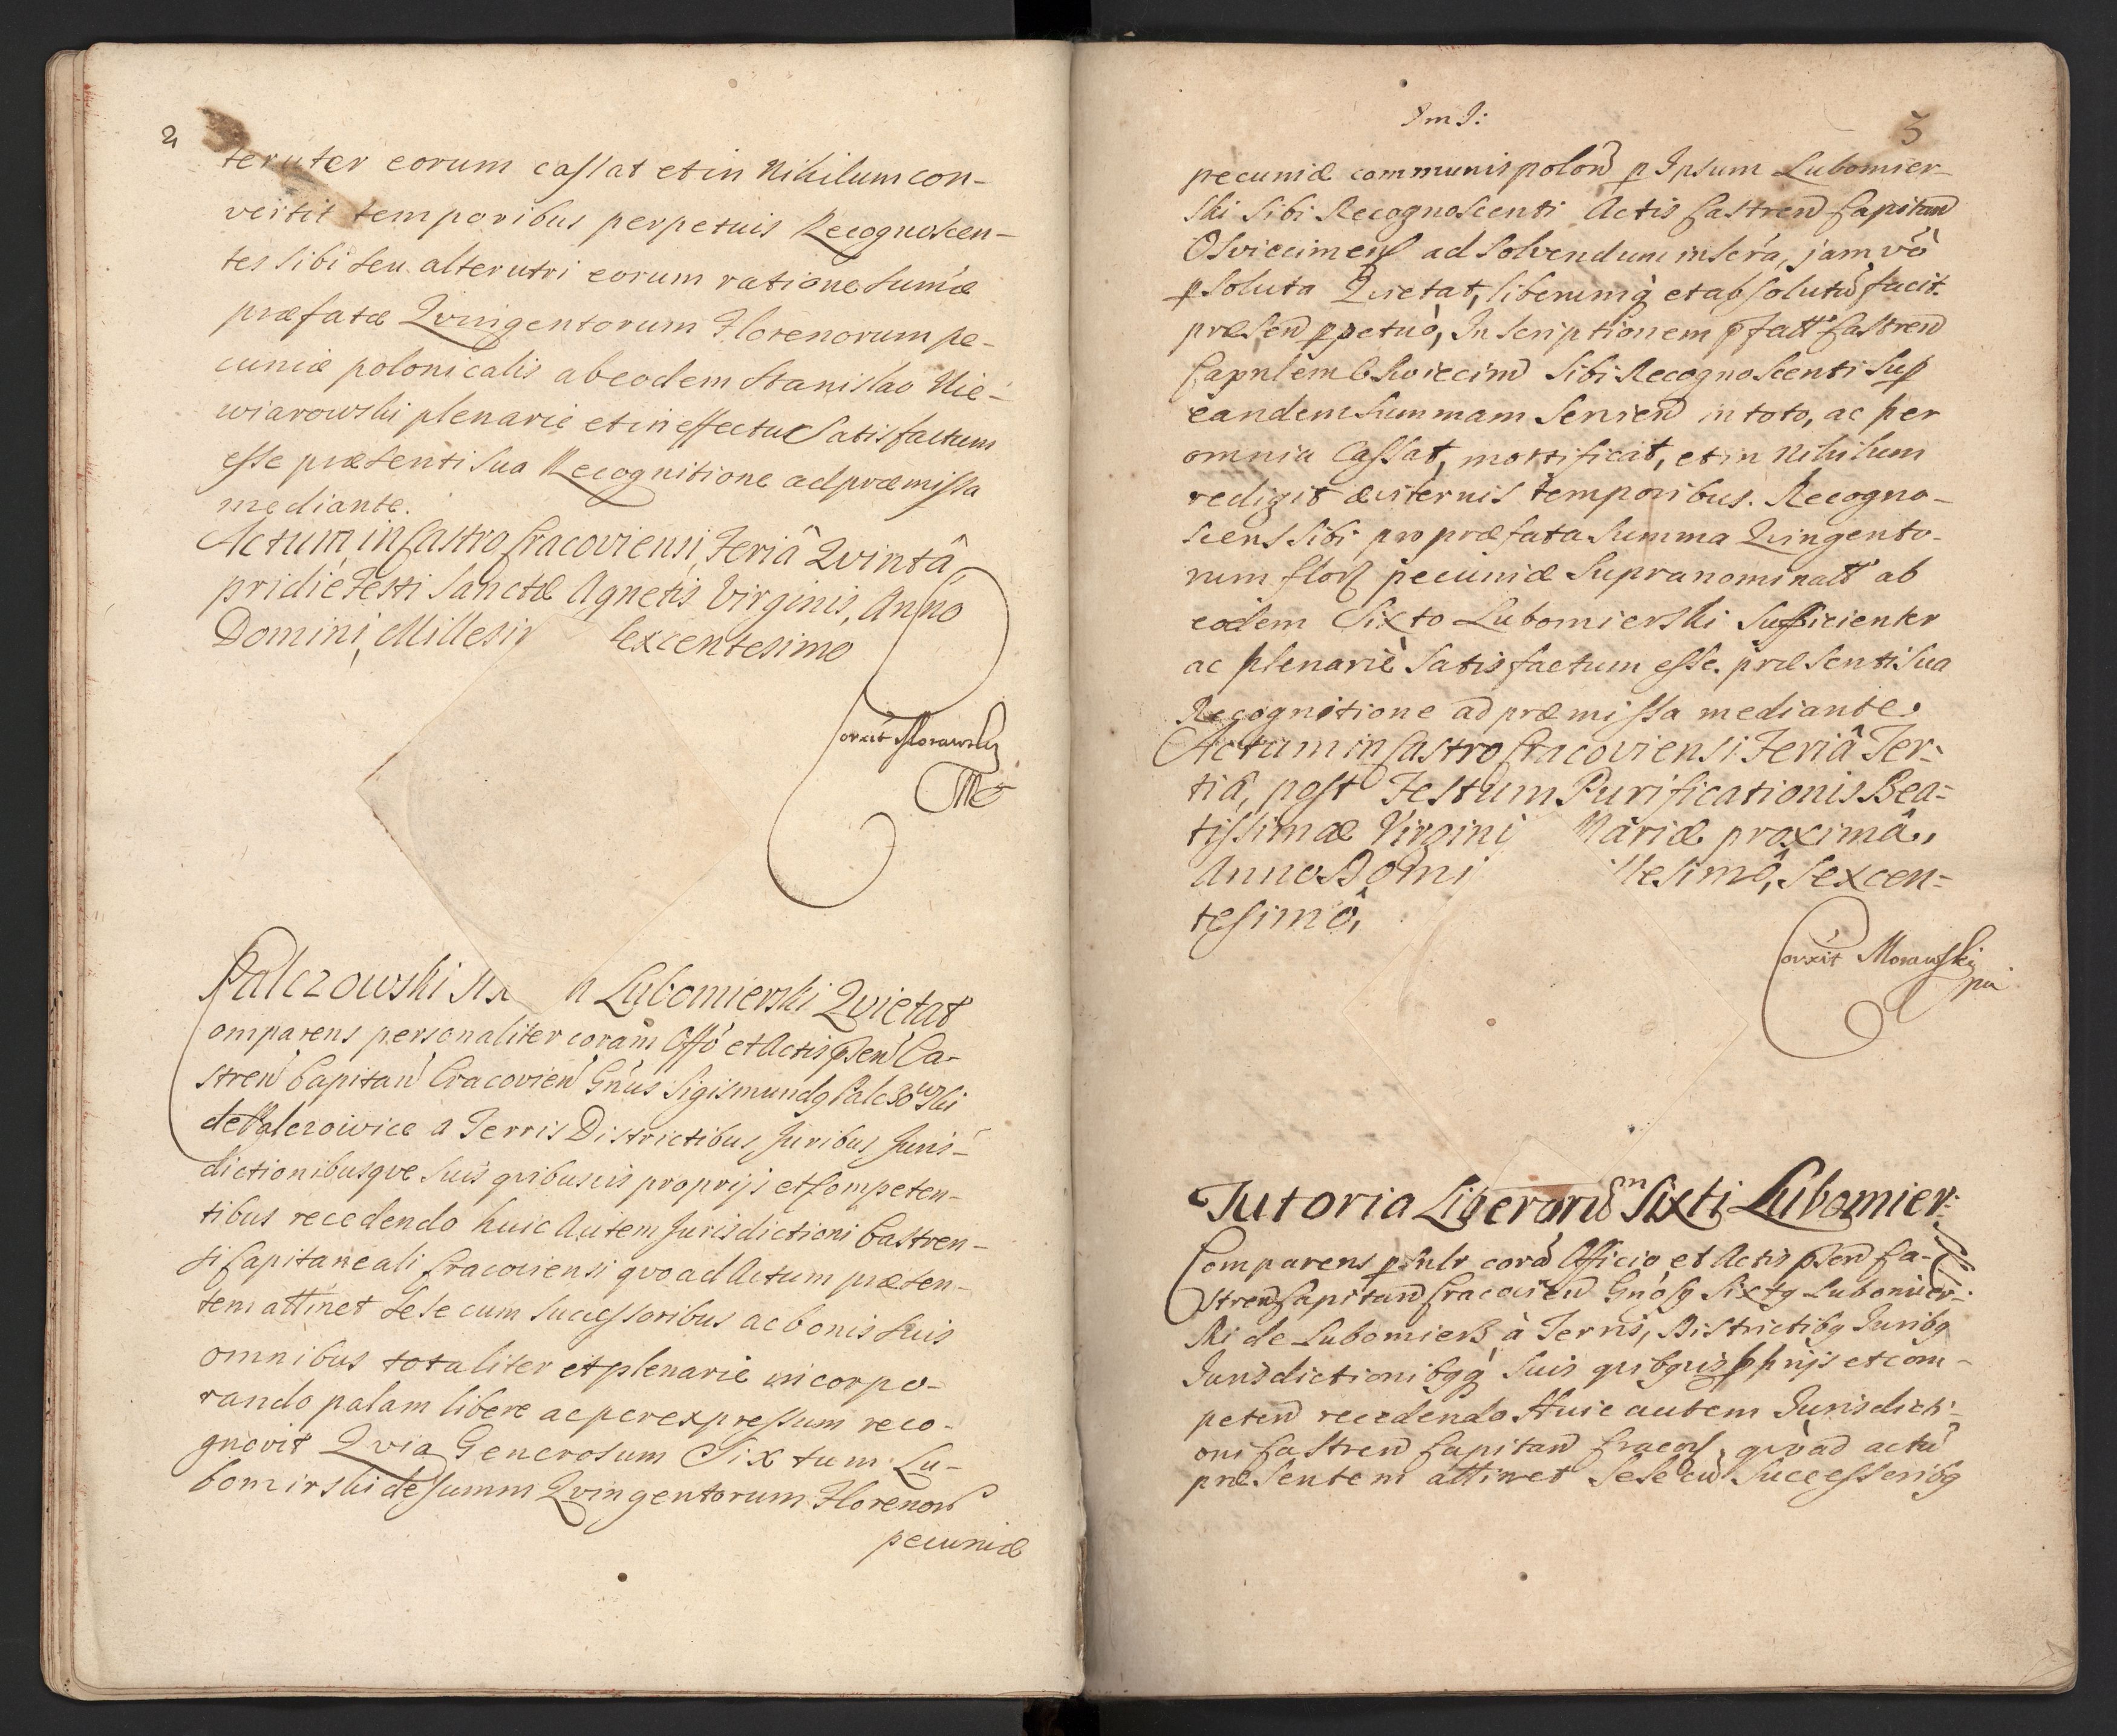 2
teruter eorum cassat et in Nihilum con-
vertit temporibus perpetuis Recognoscen-
tes sibi seu alterutri eorum ratione Sum̃æ
præfatæ Qvingentorum Florenorum pe-
cuniæ polonicalis ab eodem Stanislao Nie-
wiarowski plenarie et in effectu Satisfactum
esse præsenti sua Recognitione ad præmissa
mediante.
Actum in Castro Cracoviensi, Feriâ Qvintâ,
pridie Festi Sanctæ Agnetis Virginis, Anno
Domini, Millesi Sexcentesimo
Corexit Morawsky
Palczowski Lubomierski Qvietat
omparens personaliter coram Offo et Actis p̃sen Ca-
stren Capitan Cracovien Gnus Sigismundg Palczowski
de Palczowice a Terris Districtibus, Juribus, Juris-
dictionibusqve suis qvibusvis proprijs et Competen-
tibus recedendo huic Autem Jurisdictioni Castren-
si Capitaneali Cracoviensi qvo ad Actum præsen-
tem attinet sese cum successoribus ac bonis suis
omnibus totaliter et plenarie incorpo-
rando palam libere ac per expressum reco-
gnovit Qvia Generosum Sixtum Lu-
bomirski de summ Qvingentorum Florenor
pecuniæ
3
pecuniæ communis polon p Ipsum Lubomier-
ski sibi Recognoscenti Actis Castren Capitan
Osviecimen ad solvendum insera, jam vo
psoluta Qvietat, liberumq et absolutu facit.
præsen ppetuò, Inscriptionem pfatt Castren
Capnlem Oswiecim sibi Recognoscenti sup
eandem summam servien in toto, ac per
omnia Cassat, mortificat, et in Nihilum
redigit æviternis temporibus. Recogno-
scens sibi pro præfata summa Qvingento-
rum flor pecuniæ Supranominatt ab
eodem Sixto Lubomierski sufficienter
ac plenariè satisfactum esse. præsenti sua
Recognitione ad præmissa mediante.
Actum in Castro Cracoviensi Feriâ Ter-
tiâ, post Festum Purificationis Bea-
tissimæ Virgini Mariæ proximâ,
Anno Domi llesimô, Sexcen-
tesimô,
Corexit Morawsky
Tutoria Liberorum Sixti Lubomier:
Comparens psnlr corã Officio et Actis p̃sen Ca-
stren Capitan Cracovien Gnosg Sixtg Lubomier-
ski de Lubomierz à Terris, Districtibg Juribg
Jurisdictionibgq suis qvibgvis pprijs et com-
peten recedendo Huic autem Jurisdicti-
oni Castren Capitan Cracov, qvoad actũ
præsentem attinet sese cũ Successoribg